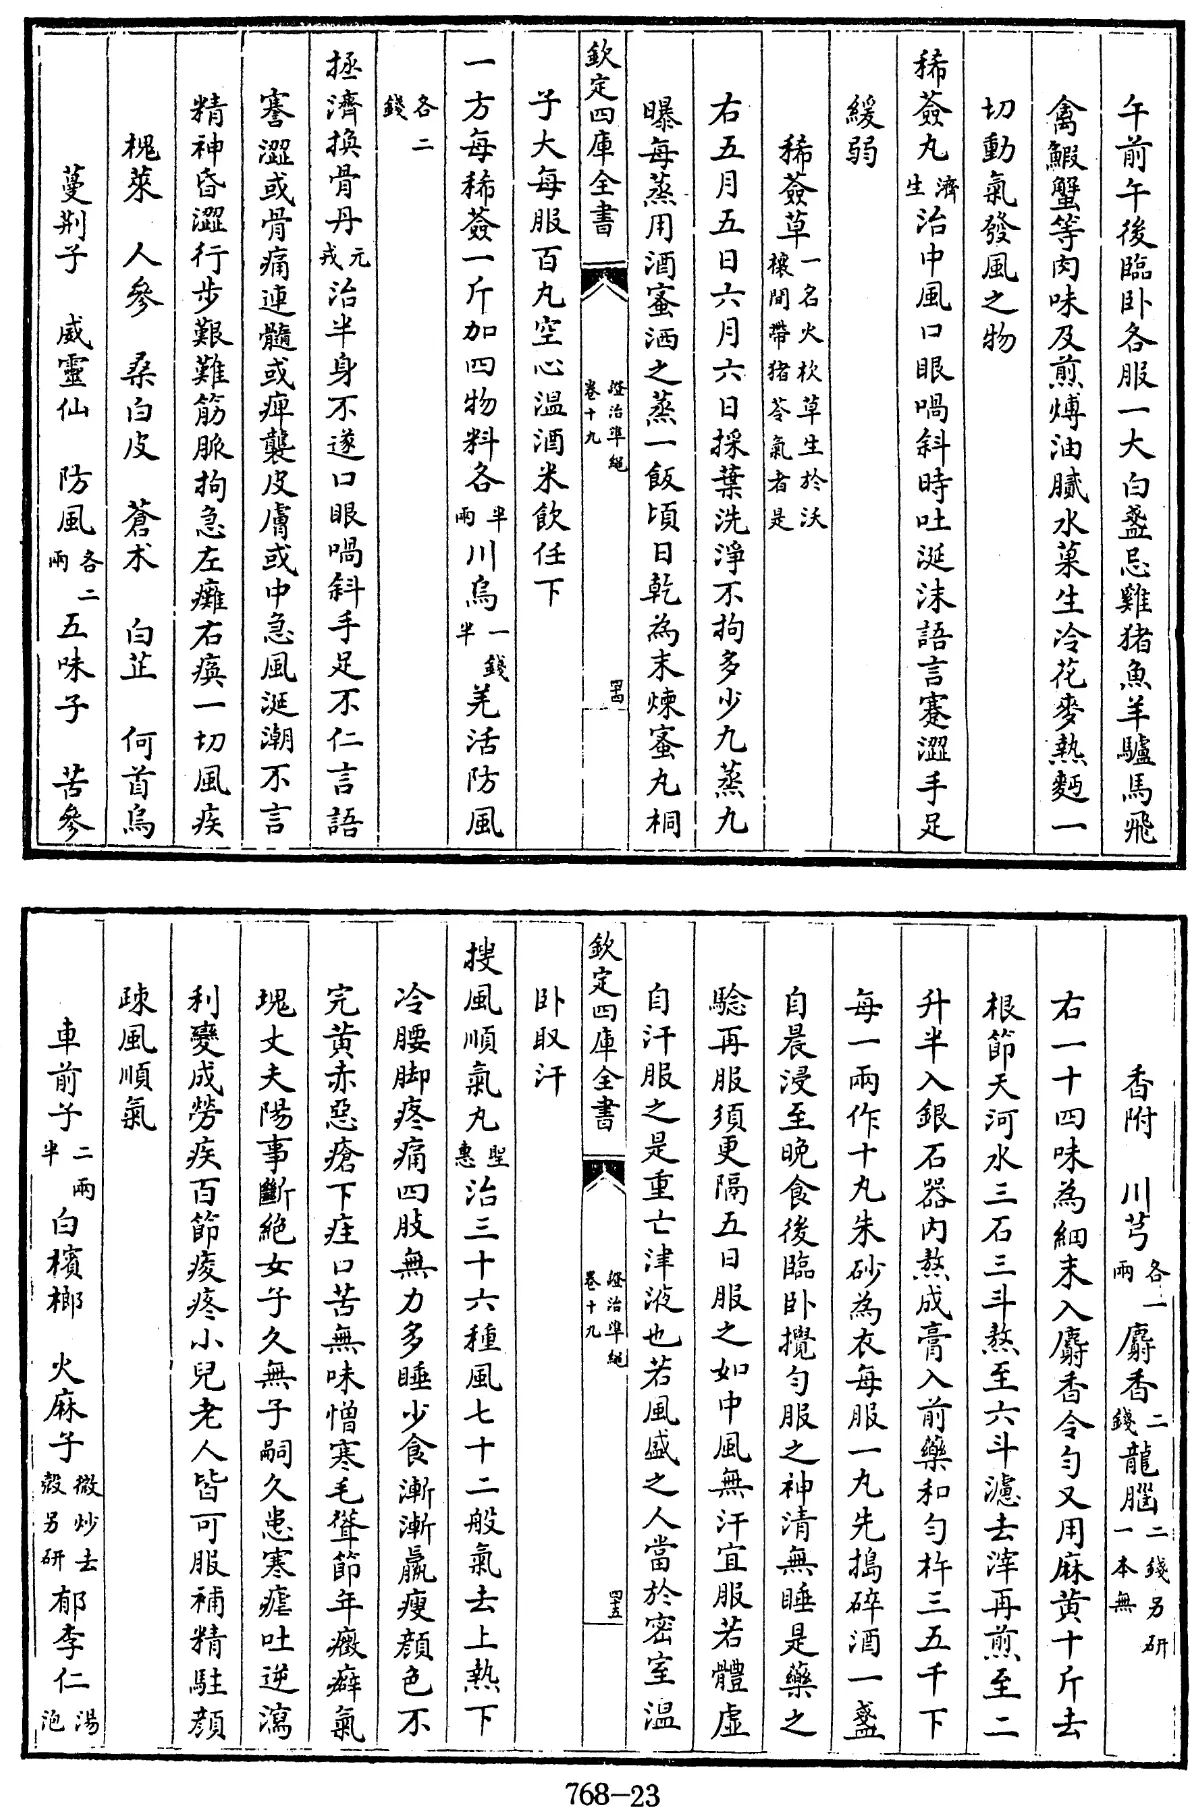 午前午後臨卧各服一大白盞忌雞猪魚羊驢馬飛
禽鰕蟹等肉味及煎煿油膩水菓生冷花麥熱麪一
切動氣發風之物
稀薟丸濟生治中風口眼喎斜時吐涎沫語言蹇澀手足
緩弱
稀薟草一名火杴草生於沃壤間帶猪苓氣者是
右五月五日六月六日採葉洗淨不拘多少九蒸九
曝每蒸用酒蜜洒之蒸一飯頃日乾為末煉蜜丸桐
欽定四庫全書
證治準繩
卷十九
四十四
子大每服百丸空心温酒米飲任下
一方每稀薟一斤加四物料各半兩川烏一錢半羌活防風
各二錢
拯濟換骨丹元戎治半身不遂口眼喎斜手足不仁言語
謇澀或骨痛連髓或痺襲皮膚或中急風涎潮不言
精神昏澀行步艱難筋脈拘急左癱右瘓一切風疾
槐莢 人參 桑白皮 蒼朮 白芷 何首烏
蔓荆子 威靈仙 防風各二兩 五味子 苦參
香附 川芎各一兩 麝香二錢 龍腦二錢另研一本無
右一十四味為細末入麝香令勻又用麻黄十斤去
根節天河水三石三斗熬至六斗濾去滓再煎至二
升半入銀石器内熬成膏入前藥和勻杵三五千下
每一兩作十丸朱砂為衣每服一丸先搗碎酒一盞
自晨浸至晚食後臨卧攪勻服之神清無睡是藥之
驗再服須更隔五日服之如中風無汗宜服若體虛
自汗服之是重亡津液也若風盛之人當於密室温
欽定四庫全書
證治準繩
卷十九
四十五
卧取汗
搜風順氣丸聖惠治三十六種風七十二般氣去上熱下
冷腰脚疼痛四肢無力多睡少食漸漸羸瘦顔色不
完黄赤惡瘡下疰口苦無味憎寒毛聳節年癥癖氣
塊丈夫陽事斷絶女子久無子嗣久患寒瘧吐逆瀉
利變成勞疾百節痠疼小兒老人皆可服補精駐顔
疎風順氣
車前子二兩半 白檳榔 火麻子微炒去殼另研 郁李仁湯泡
768-23